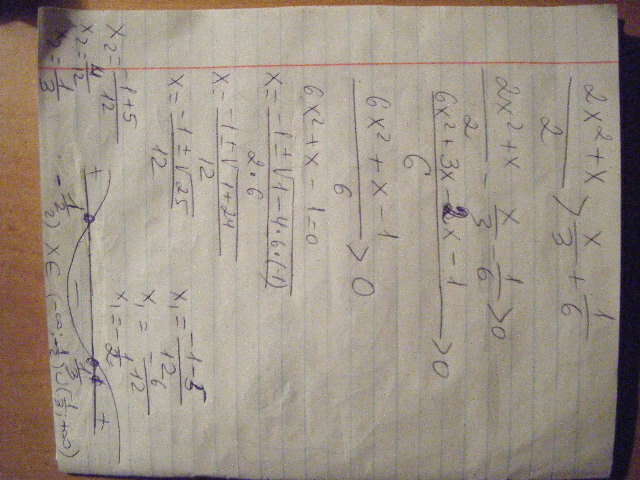 (2x²+x)/2 > x/3 + 1/6
(2x²+x)/2 - x/3 - 1/6 > 0
(6x²+3x-2x-1)/6 > 0
(6x²+x-1)/6 > 0
6x²+x-1=0
x = (-1±√(1-4·6·(-1)))/(2·6)
x = (-1±√(1+24))/12
x = (-1±√25)/12
x₁ = (-1-5)/12
x₁ = -6/12
x₁ = -1/2
x₂ = (-1+5)/12
x₂ = 4/12
x₂ = 1/3
+ - +
-1/2 1/3
x ∈ (-∞; -1/2) ∪ (1/3; +∞)